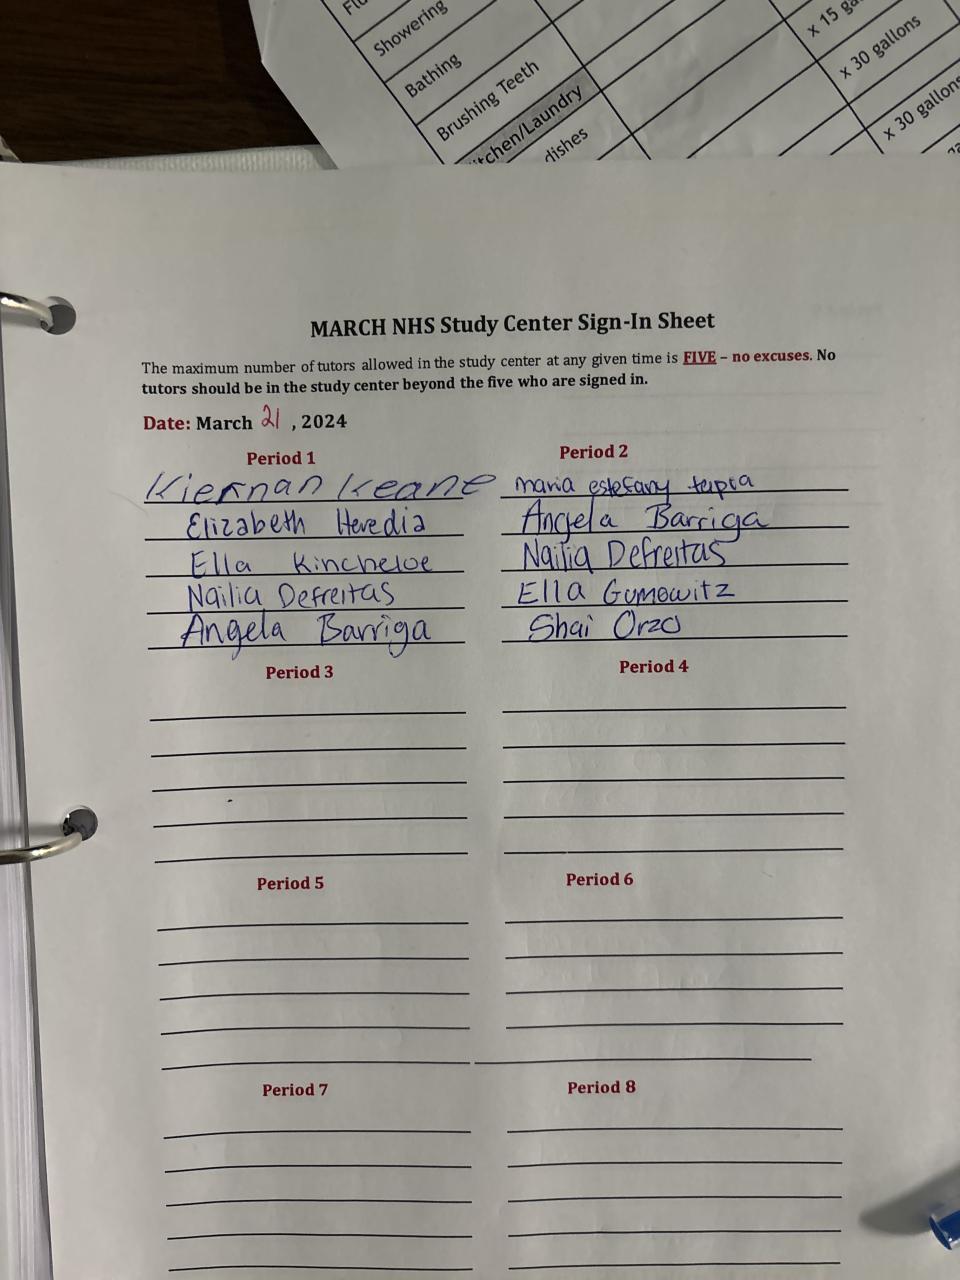 Showering
Bathing
Brushing Teeth
dishes
x 15
x 30 gallons
x 30 gallons
MARCH NHS Study Center Sign-In Sheet
The maximum number of tutors allowed in the study center at any given time is FIVE – no excuses. No
tutors should be in the study center beyond the five who are signed in.
Date: March 21, 2024
Period 1
Kiernan Keane
Elizabeth Heredia
Ella Kincheloe
Nailia Defreitas
Angela Barriga
Period 2
maria estefany tapia
Angela Barriga
Nailia Defreitas
Ella Gumowitz
Shai Orzo
Period 3
Period 4
Period 5
Period 6
Period 7
Period 8